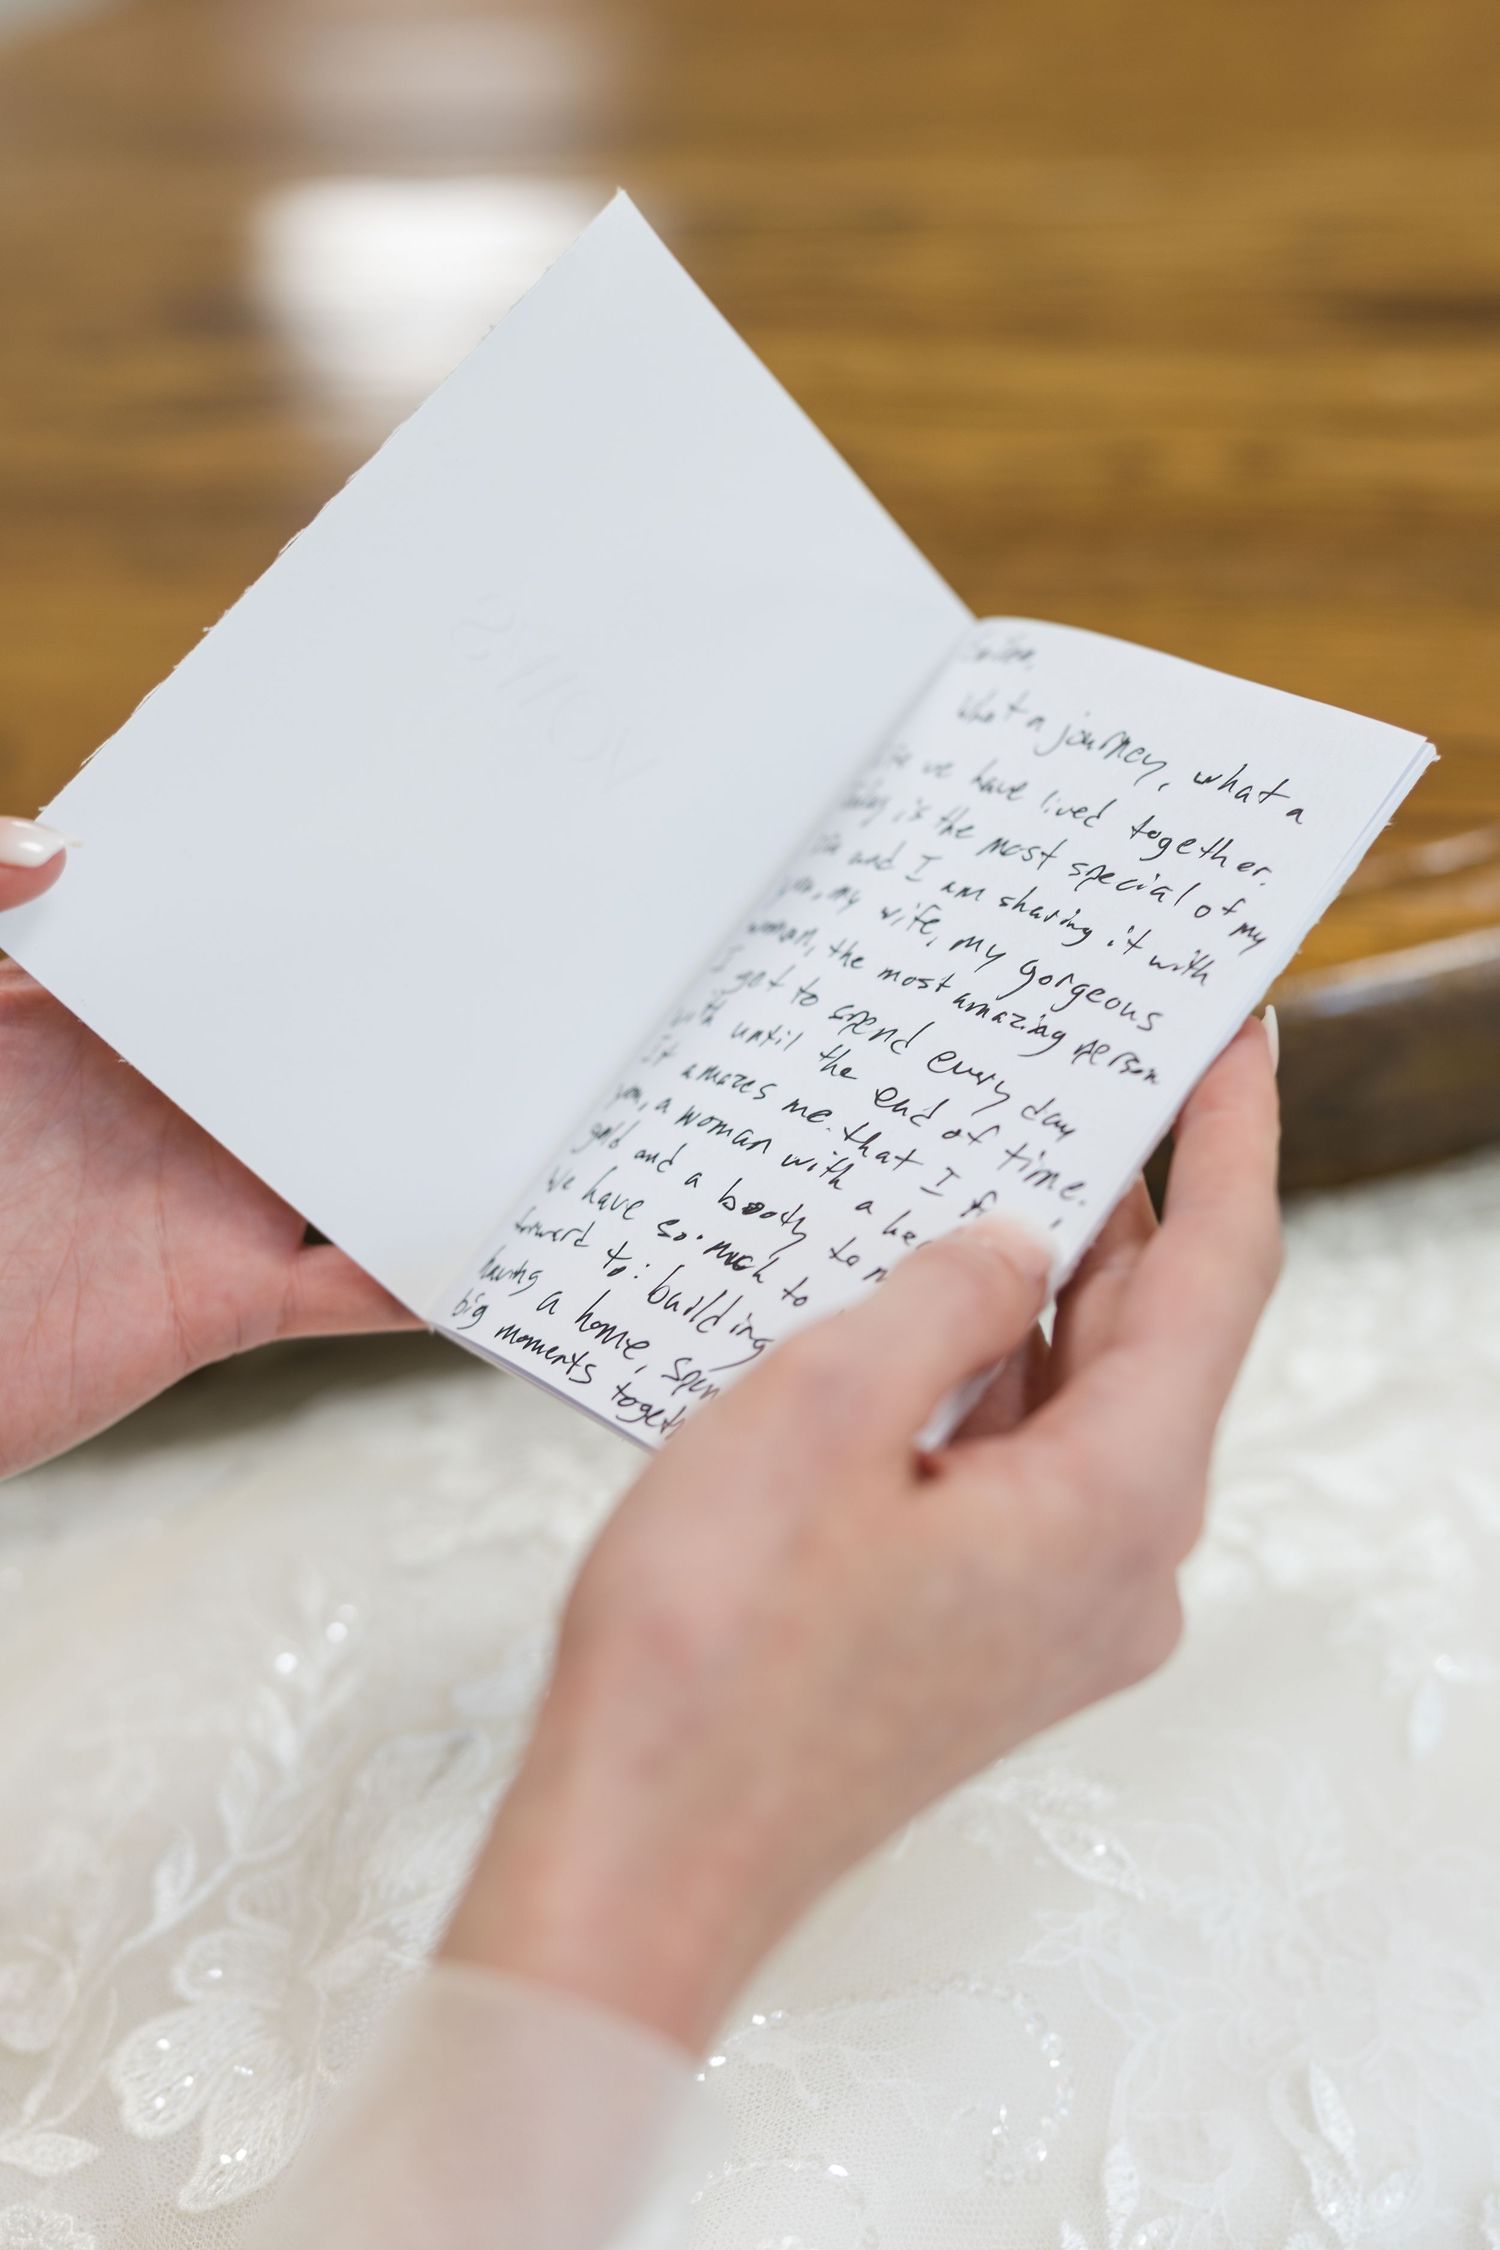 What a journey, what a
life we have lived together.
Today is the most special of my
life and I am sharing it with
you, my wife, my gorgeous
woman, the most amazing person
I get to spend every day
with until the end of time.
It amazes me that I
you, a woman with a
gold and a booty to
We have so much to
forward to: building
having a home,
big moments
VOWS